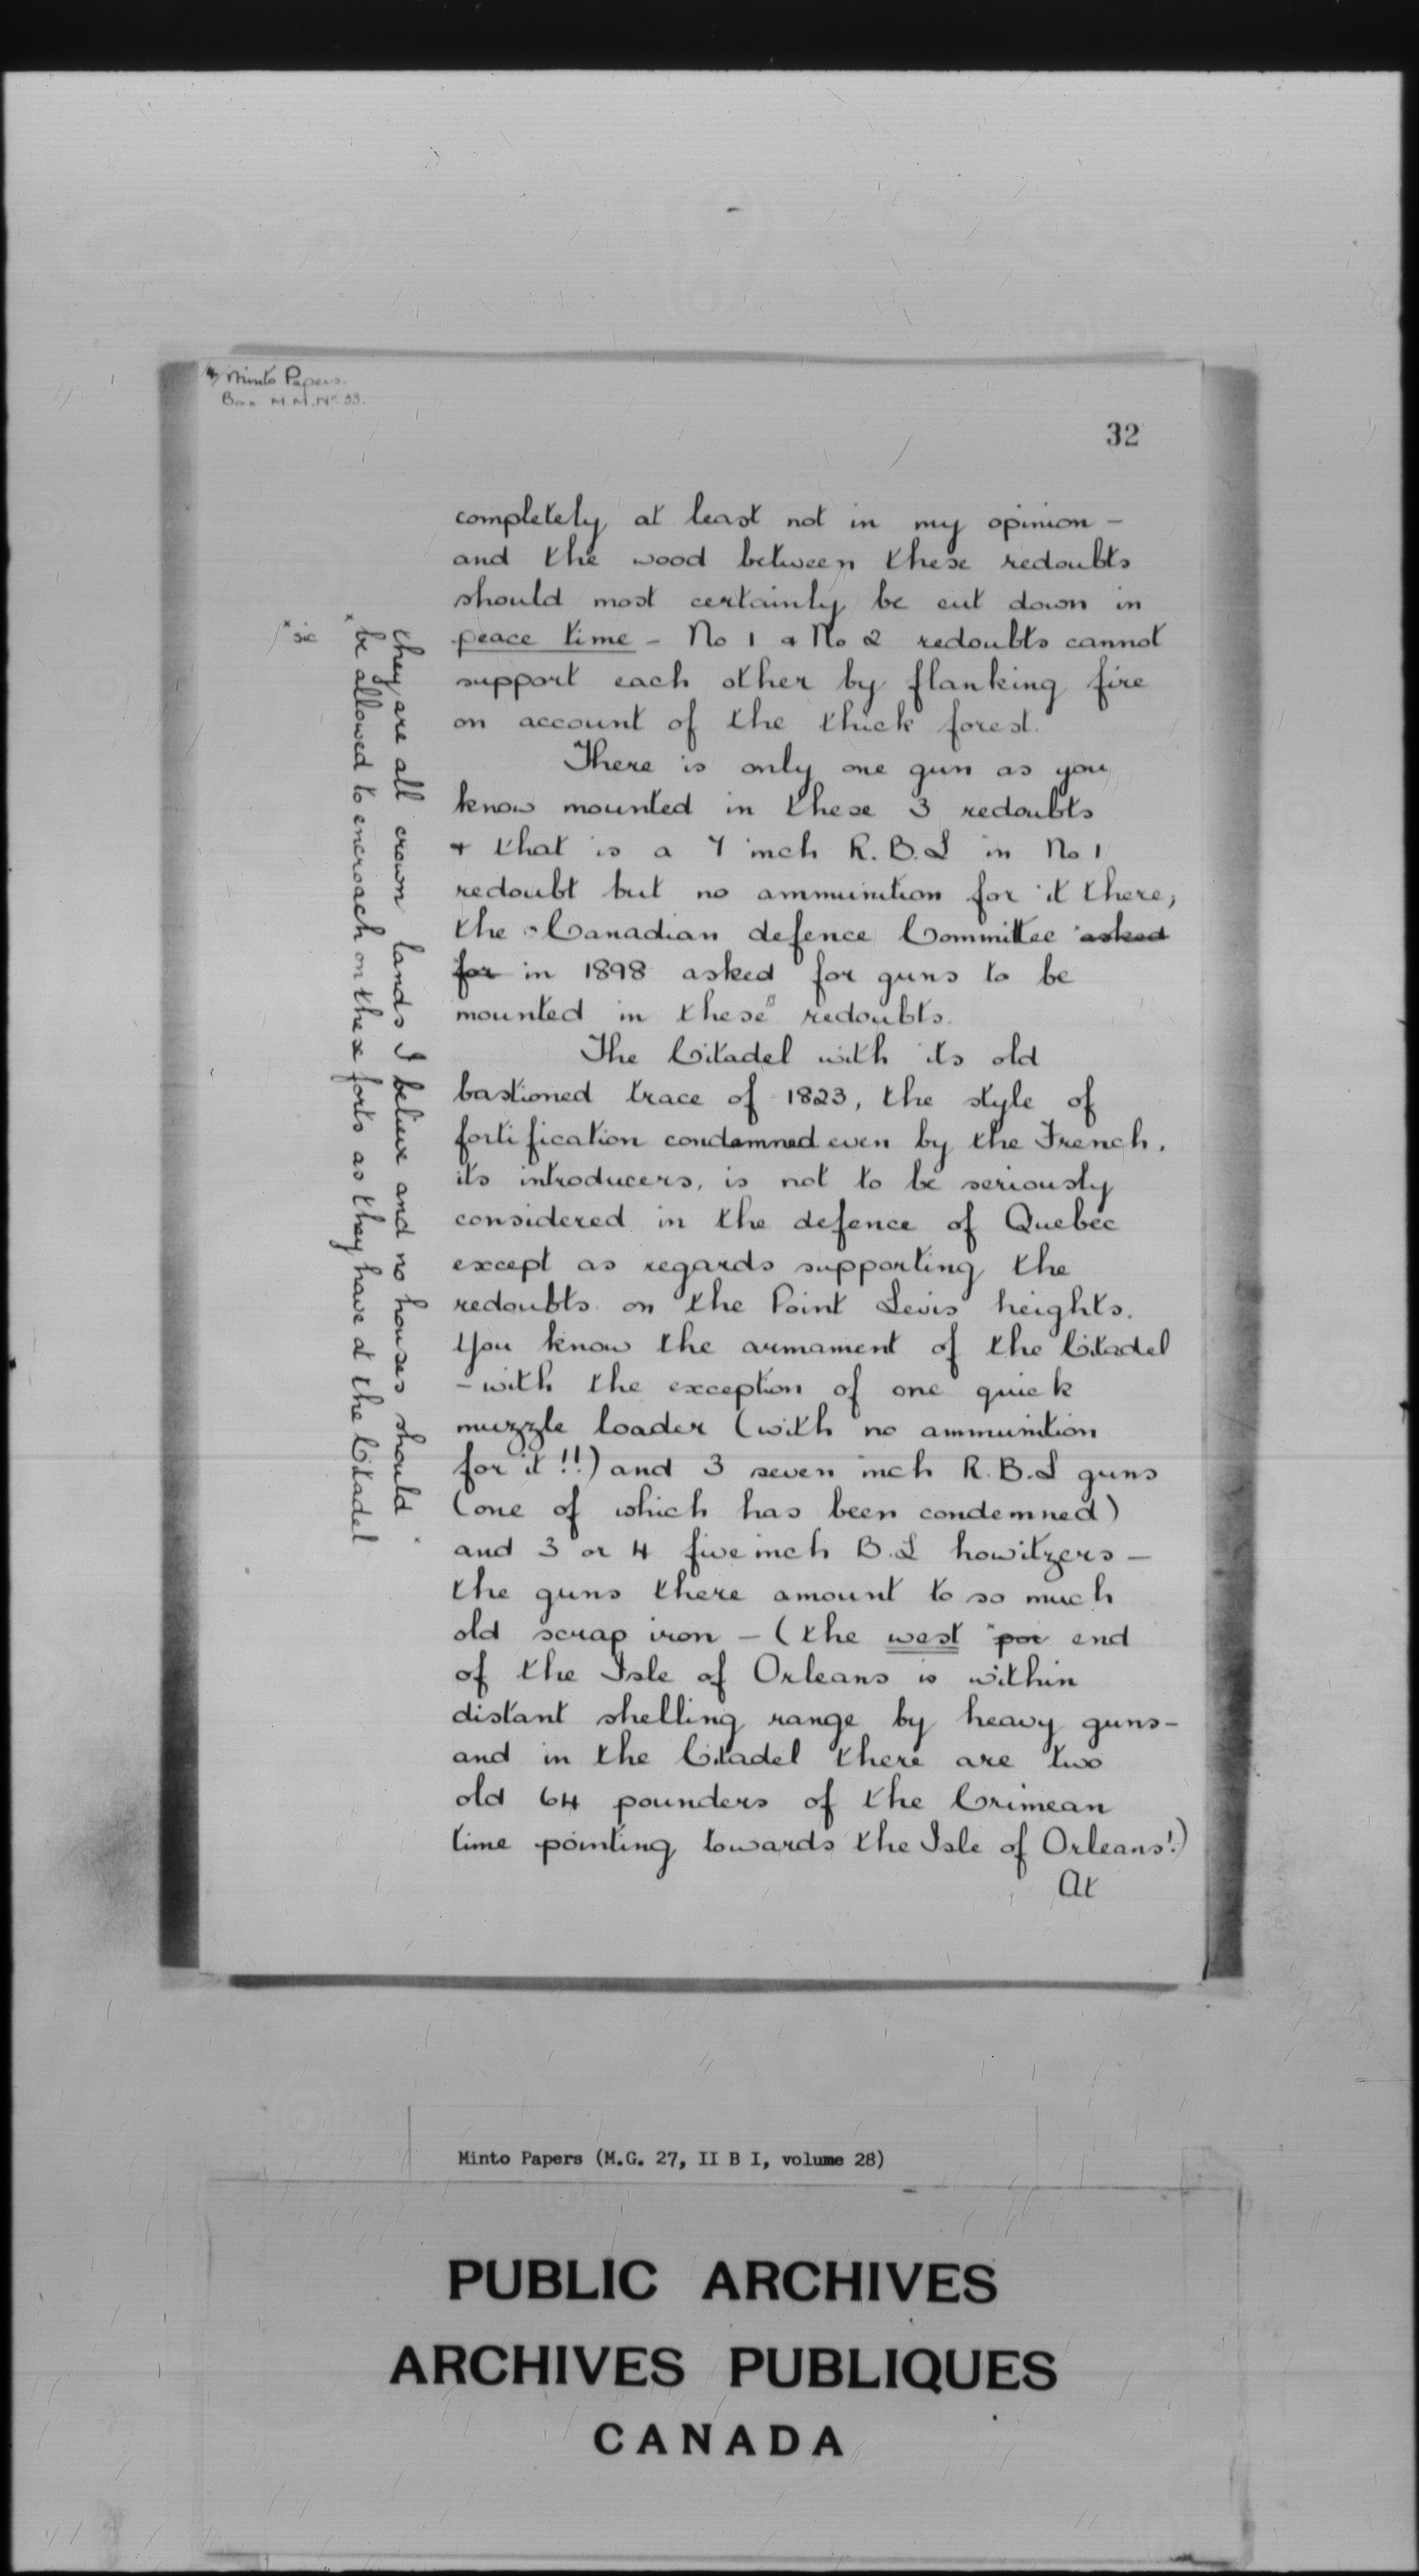 4) Minto Papers.
Box M.M. No. 33.
32
completely at least not in my opinion -
and the wood between these redoubts
should most certainly be cut down in
peace time - No 1 & No 2 redoubts cannot
support each other by flanking fire
on account of the thick forest.
There is only one gun as you
know mounted in these 3 redoubts
& that is a 7 inch R.B.L in No 1
redoubt but no ammunition for it there;
the Canadian defence Committee asked
for in 1898 asked for guns to be
mounted in these redoubts.
The Citadel with its old
bastioned trace of 1823, the style of
fortification condemned even by the French,
its introducers, is not to be seriously
considered in the defence of Quebec
except as regards supporting the
redoubts on the Point Levis heights.
You know the armament of the Citadel
- with the exception of one quick
muzzle loader (with no ammunition
for it!!) and 3 seven inch R.B.L guns
(one of which has been condemned)
and 3 or 4 five inch B.L howitzers -
the guns there amount to so much
old scrap iron - (the west por end
of the Isle of Orleans is within
distant shelling range by heavy guns -
and in the Citadel there are two
old 64 pounders of the Crimean
time pointing towards the Isle of Orleans!)
At
they are all crown lands I believe and no houses should
x be allowed to encroach on these forts as they have at the Citadel
x sic
Minto Papers (M.G. 27, II B I, volume 28)
PUBLIC ARCHIVES
ARCHIVES PUBLIQUES
CANADA